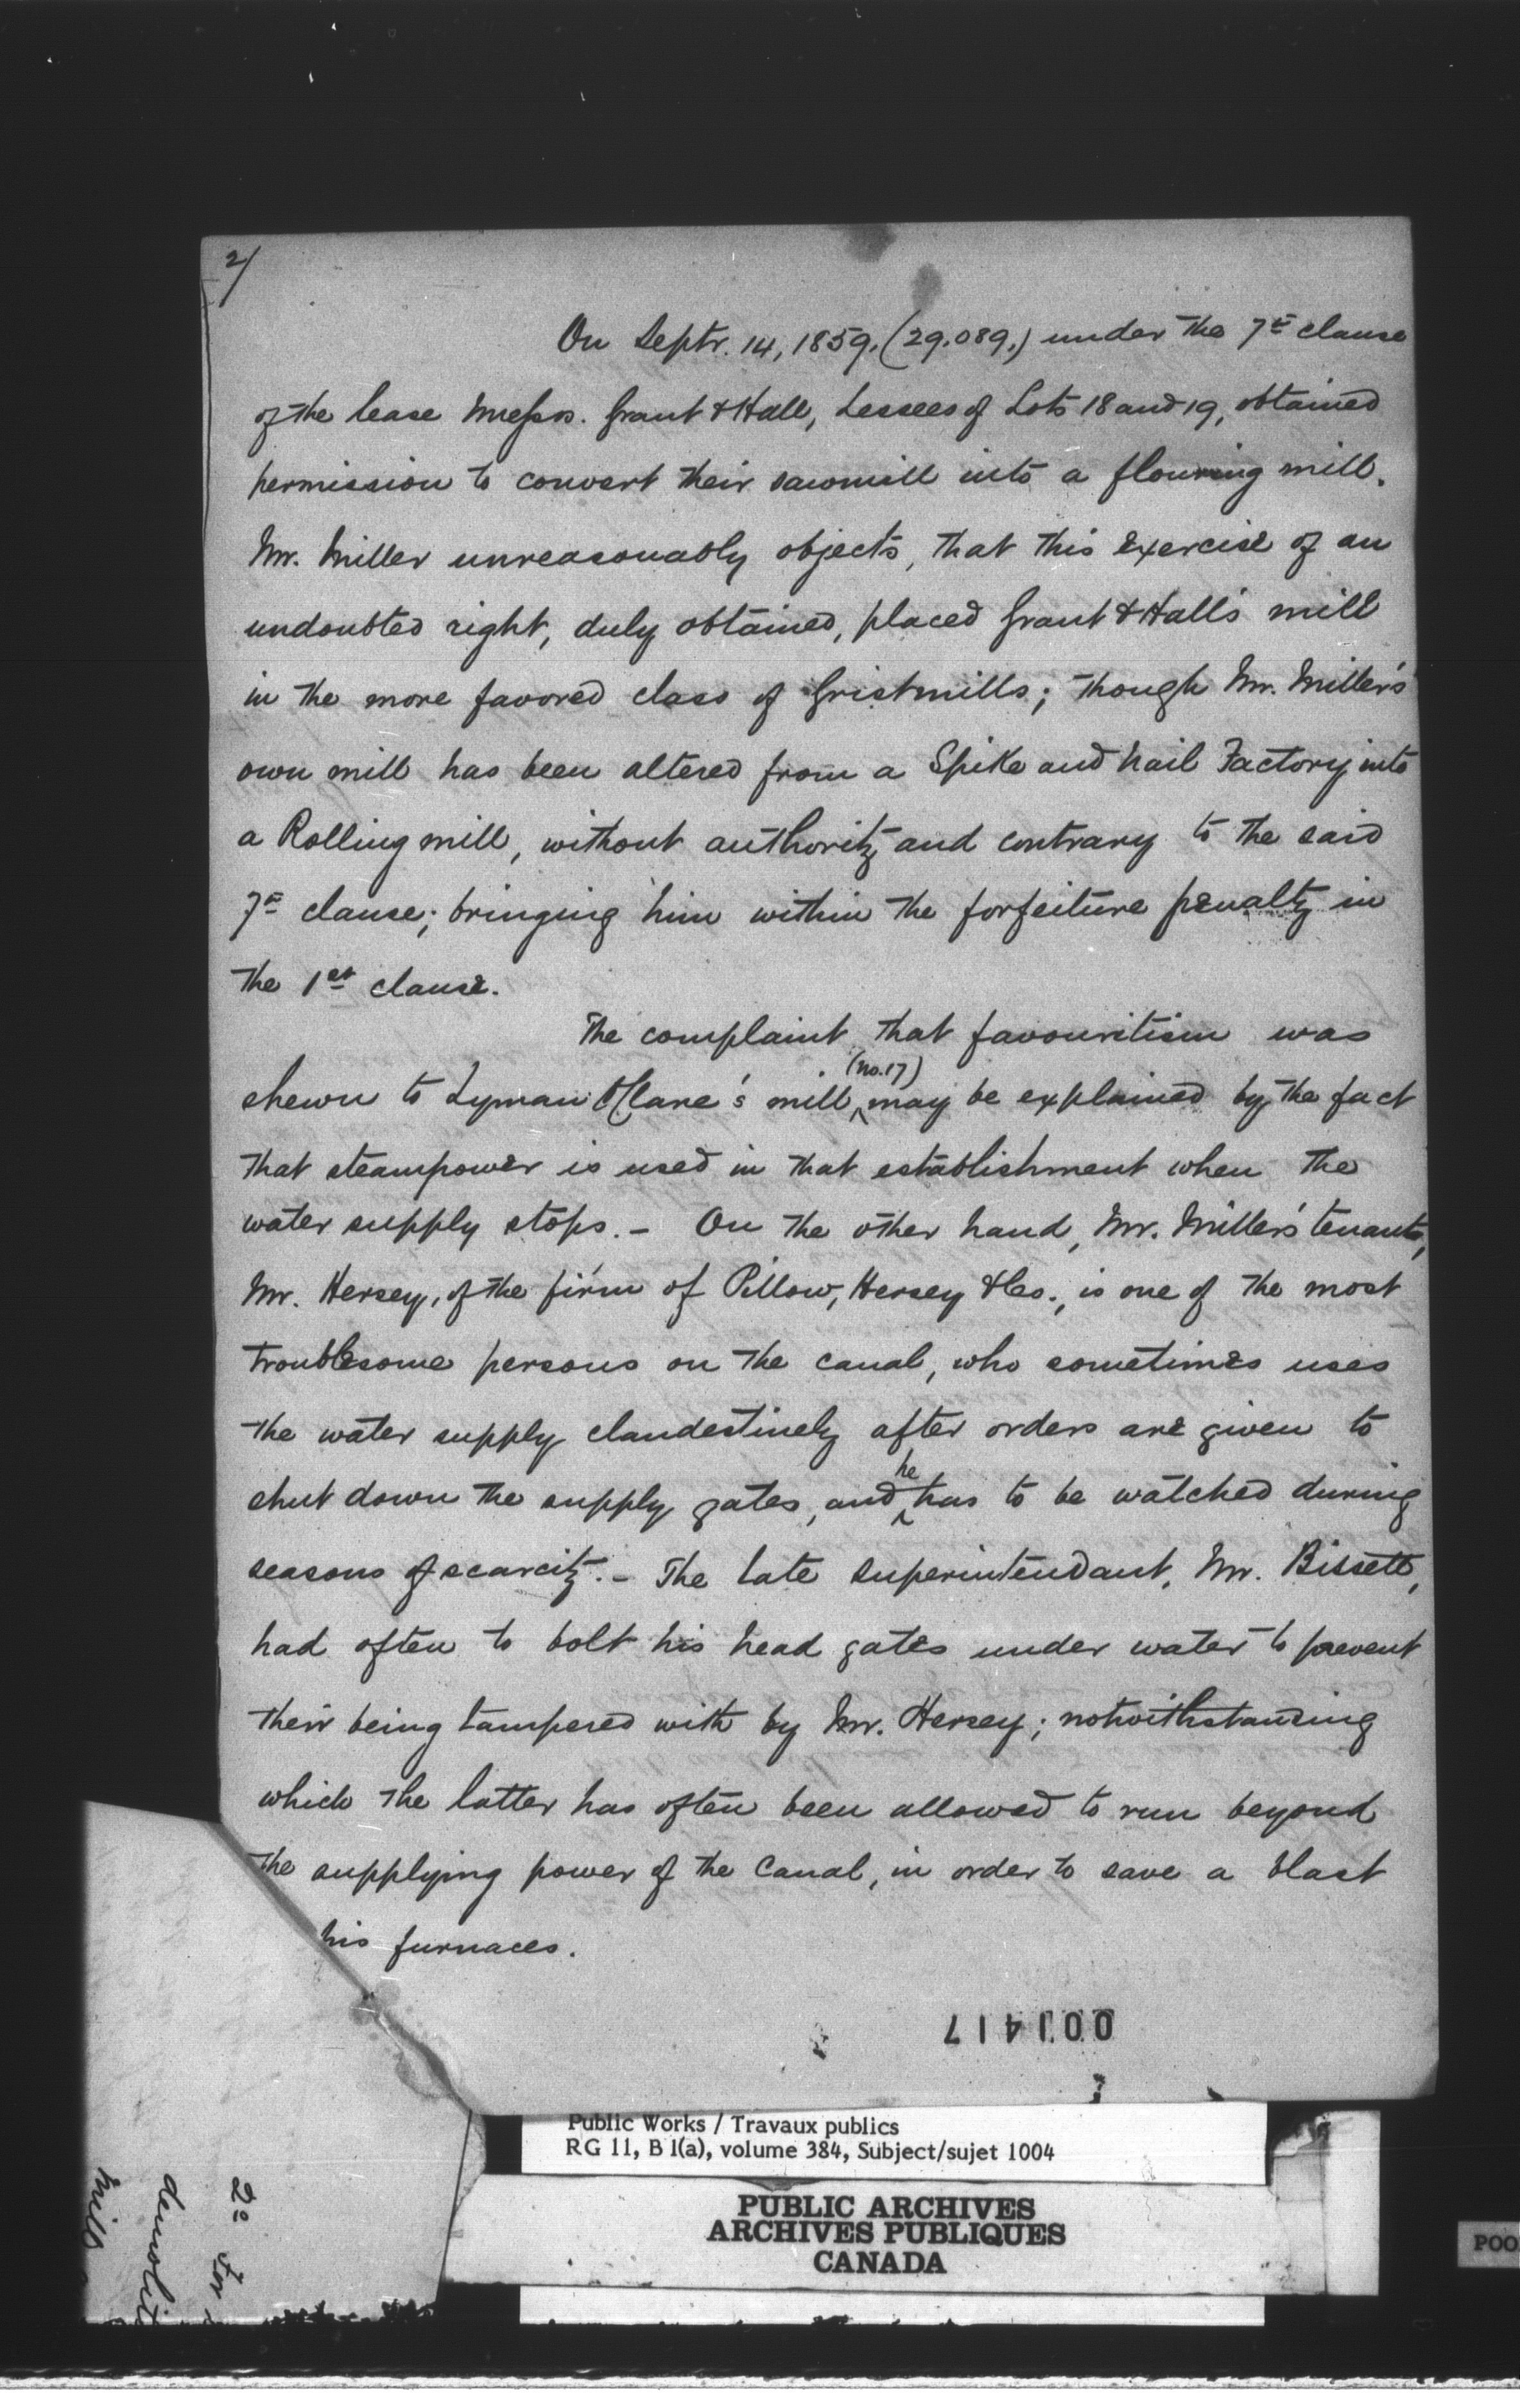 2/
On Septr. 14, 1859. (29.089.) under the 7th clause
of the lease Messrs. Grant & Hall, Lessees of Lots 18 and 19, obtained
permission to convert their sawmill into a flouring mill.
Mr. Miller unreasonably objects, that this exercise of an
undoubted right, duly obtained, placed Grant & Hall's mill
in the more favored class of Gristmills; though Mr. Miller's
own mill has been altered from a Spike and Nail Factory into
a Rolling mill, without authority and contrary to the said
7th clause; bringing him within the forfeiture penalty in
the 1st clause.
The complaint that favouritism was
(No. 17)
shewn to Lyman Clare's mill ‸ may be explained by the fact
that steampower is used in that establishment when the
water supply stops. - On the other hand, Mr. Miller's tenants,
Mr. Hersey, of the firm of Pillow, Hersey & Co., is one of the most
troublesome persons on the canal, who sometimes uses
the water supply clandestinely after orders are given to
he
shut down the supply gates, and ‸ has to be watched during
seasons of scarcity. - The late Superintendant, Mr. Bissett,
had often to bolt his head gates under water to prevent
their being tampered with by Mr. Hersey; notwithstanding
which the latter has often been allowed to run beyond
the supplying power of the Canal, in order to save a blast
his furnaces.
001417
Public Works / Travaux publics
RG 11, B 1(a), volume 384, Subject/sujet 1004
PUBLIC ARCHIVES
ARCHIVES PUBLIQUES
CANADA
POO
2o For
demolit
mill